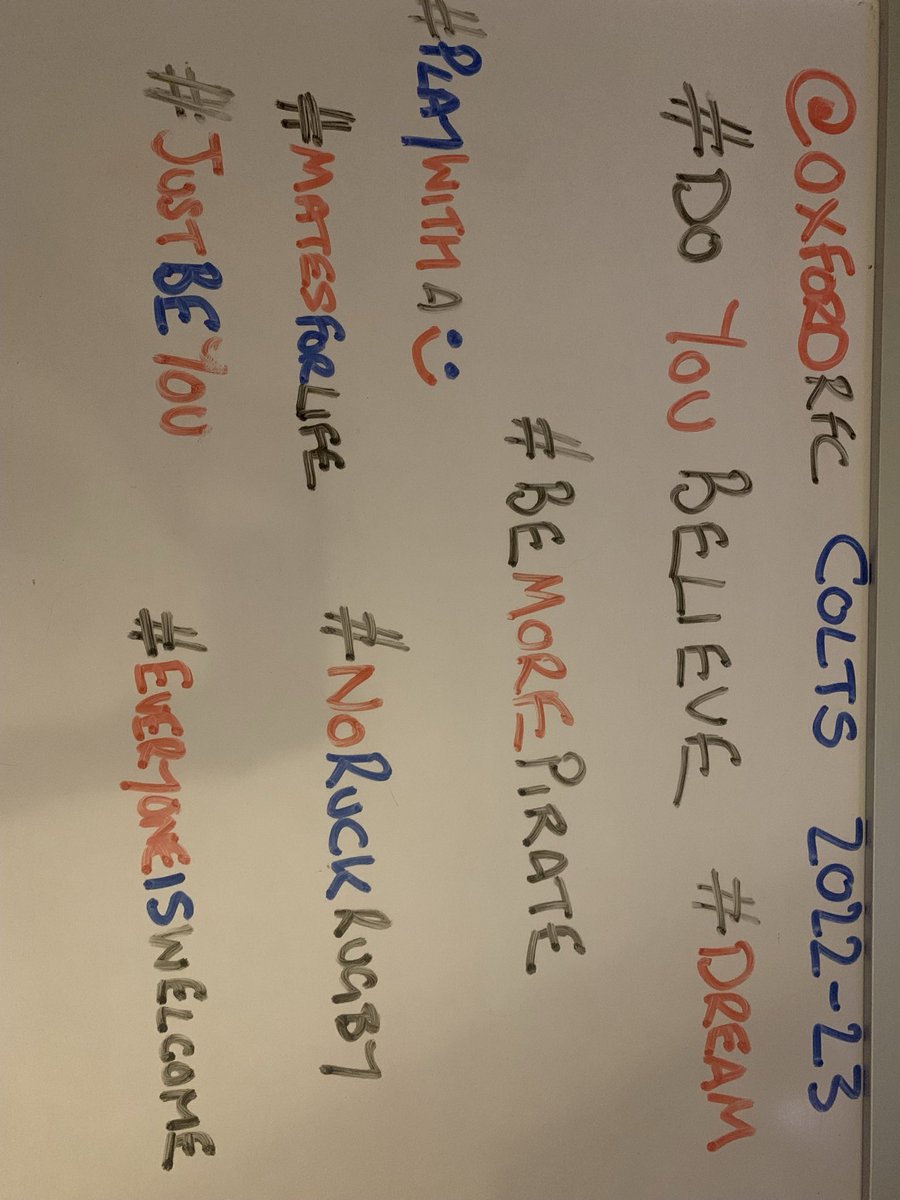 @OXFORDRFC COLTS 2022-23
#DO YOU BELIEVE #DREAM
#BEMOREPIRATE
#PLAYWITHA
#MATESFORLIFE #NORUCKRUGBY
#JUSTBEYOU #EVERYONEISWELCOME